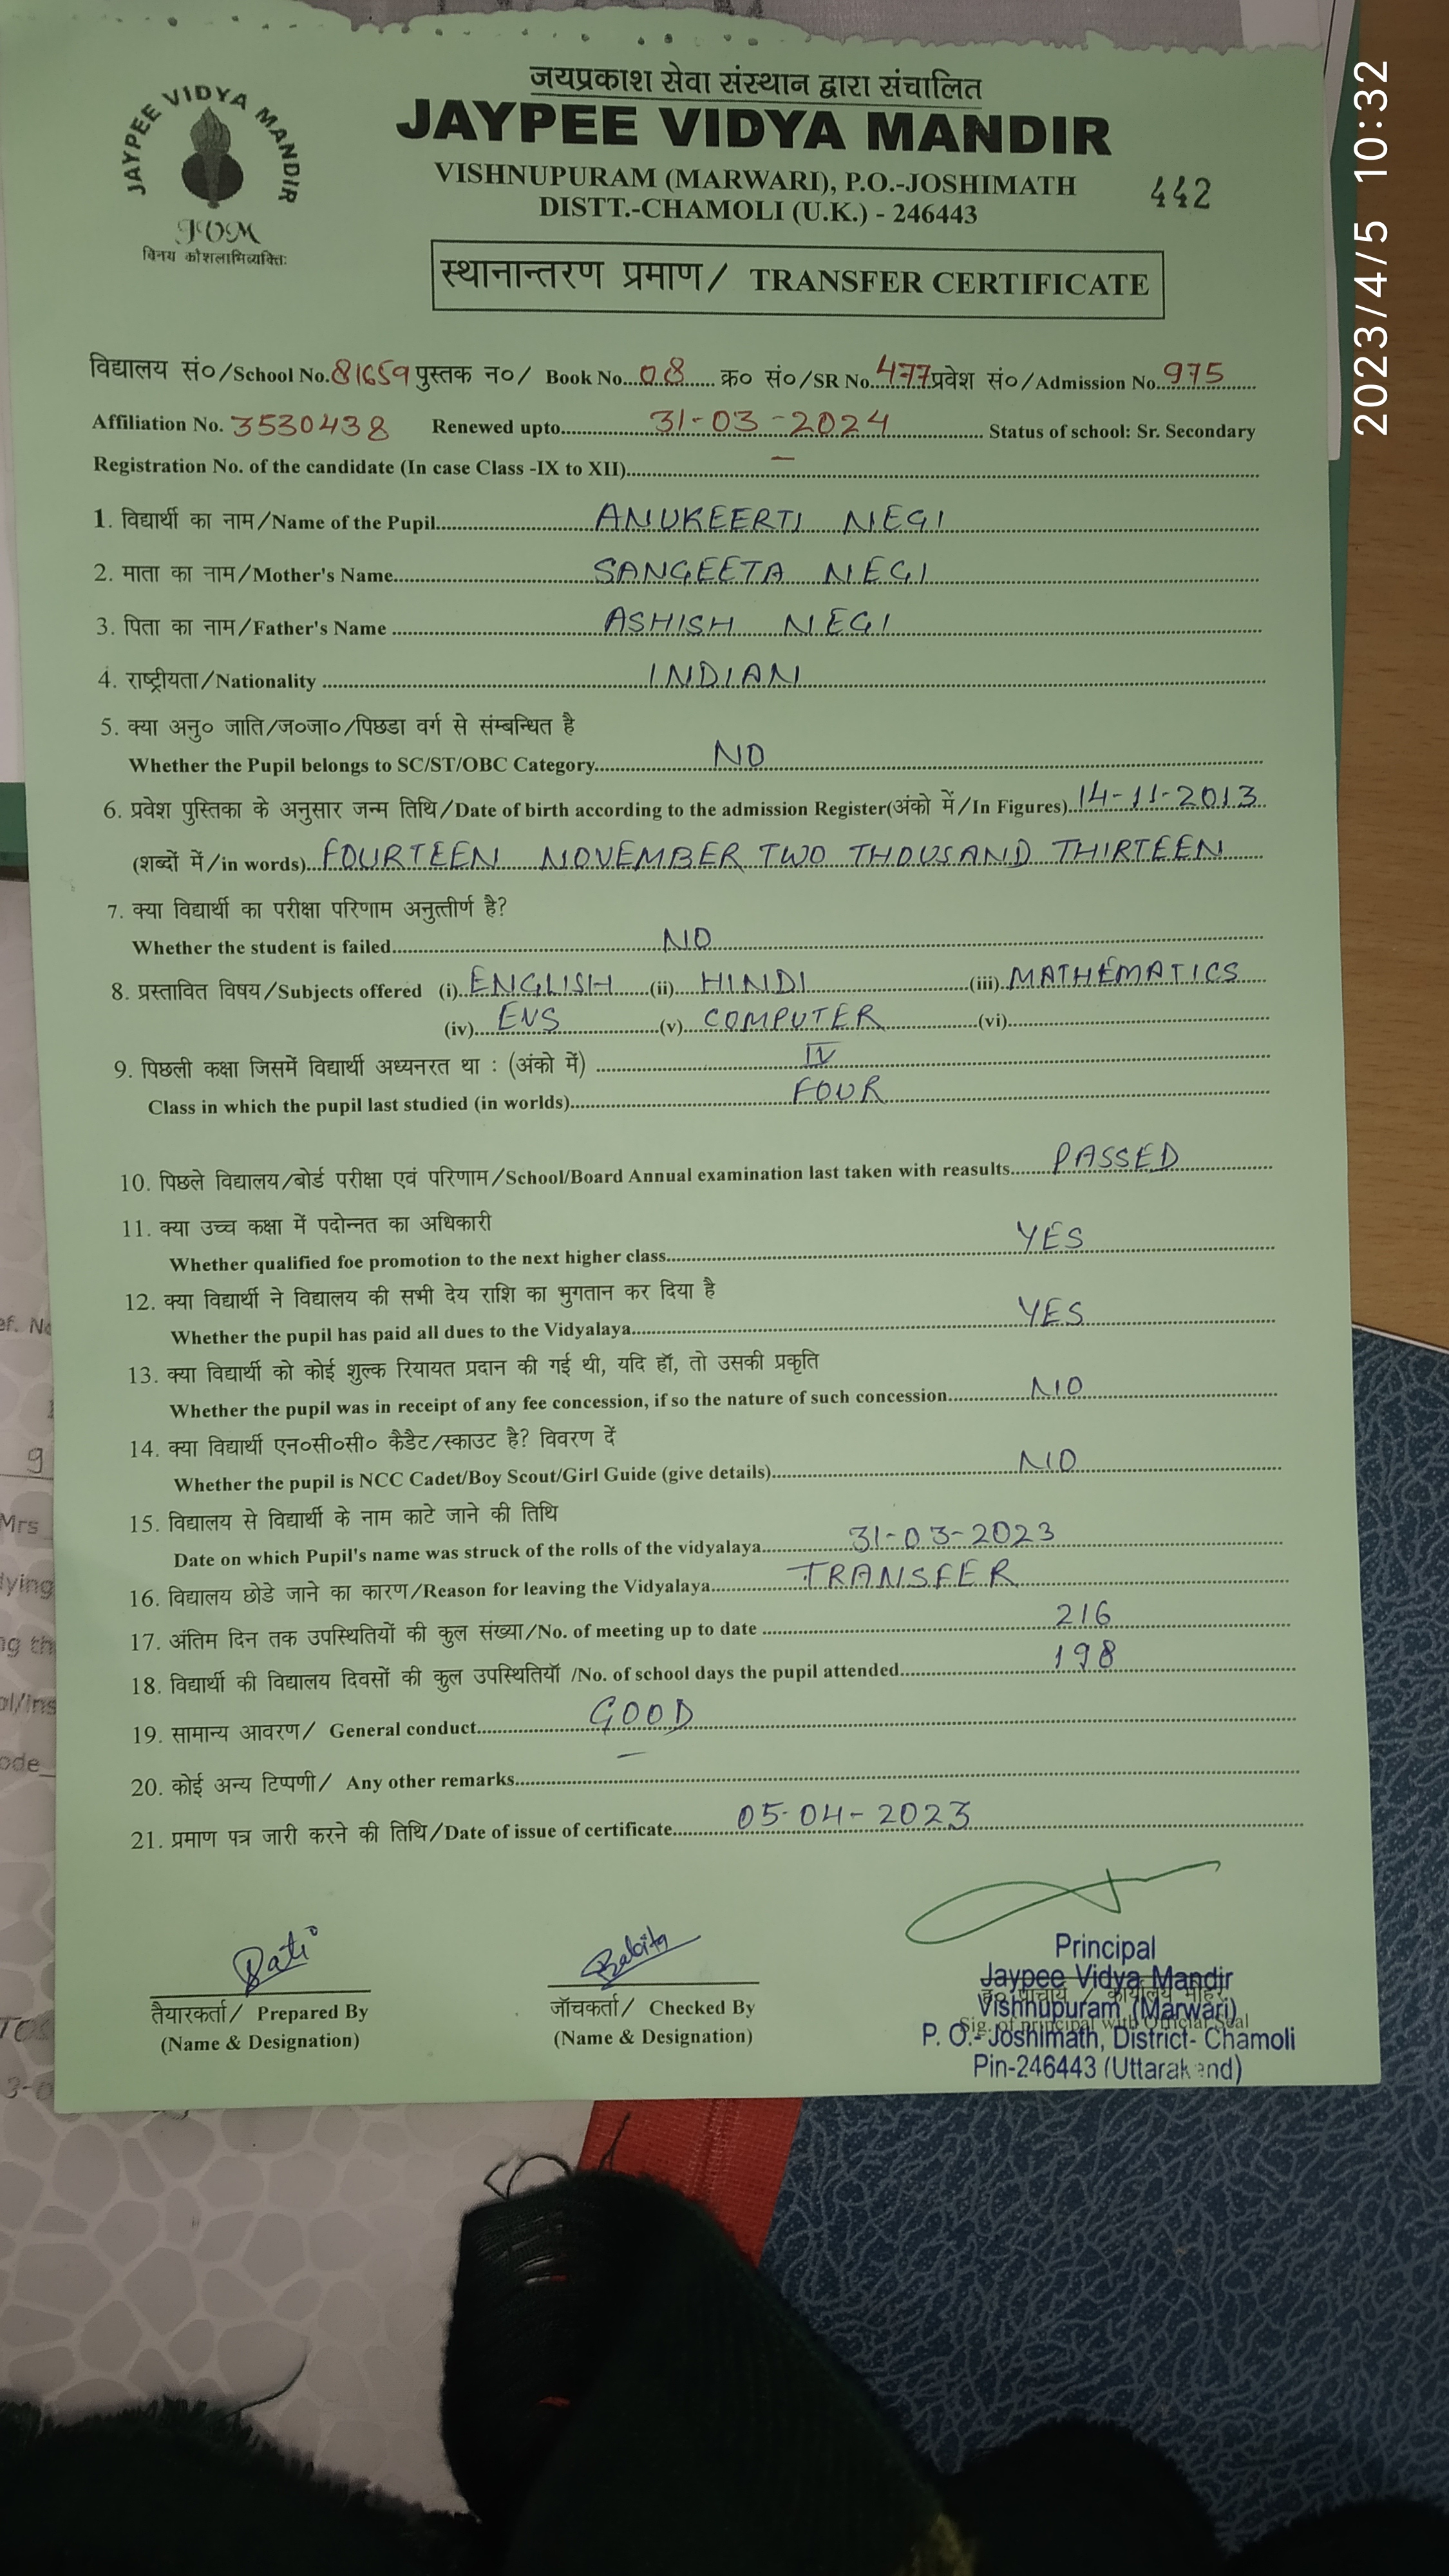 जयप्रकाश सेवा संस्थान द्वारा संचालित
JAYPEE VIDYA MANDIR
JAYPEE VIDYA MANDIR
VISHNUPURAM (MARWARI), P.O.-JOSHIMATH
442
DISTT.-CHAMOLI (U.K.) - 246443
JVM
विनय कौशलाभिव्यक्तिः
स्थानान्तरण प्रमाण/ TRANSFER CERTIFICATE
विद्यालय सं०/School No.81659 पुस्तक न०/ Book No...08...... क्र० सं०/SR No.477 प्रवेश सं०/Admission No.975
Affiliation No. 3530438 Renewed upto 31-03-2024 Status of school: Sr. Secondary
Registration No. of the candidate (In case Class -IX to XII) –
1. विद्यार्थी का नाम/Name of the Pupil ANUKEERTI NEGI
2. माता का नाम/Mother's Name SANGEETA NEGI
3. पिता का नाम/Father's Name ASHISH NEGI
4. राष्ट्रीयता/Nationality INDIAN
5. क्या अनु० जाति/ज०जा०/पिछडा वर्ग से संम्बन्धित है
Whether the Pupil belongs to SC/ST/OBC Category NO
6. प्रवेश पुस्तिका के अनुसार जन्म तिथि/Date of birth according to the admission Register(अंको में/In Figures) 14-11-2013
(शब्दों में/in words) FOURTEEN NOVEMBER TWO THOUSAND THIRTEEN
7. क्या विद्यार्थी का परीक्षा परिणाम अनुत्तीर्ण है?
Whether the student is failed NO
8. प्रस्तावित विषय/Subjects offered (i) ENGLISH (ii) HINDI (iii) MATHEMATICS
(iv) EVS (v) COMPUTER (vi)
9. पिछली कक्षा जिसमें विद्यार्थी अध्यनरत था : (अंको में) IV
Class in which the pupil last studied (in worlds) FOUR
10. पिछले विद्यालय/बोर्ड परीक्षा एवं परिणाम/School/Board Annual examination last taken with reasults PASSED
11. क्या उच्च कक्षा में पदोन्नत का अधिकारी
Whether qualified foe promotion to the next higher class YES
12. क्या विद्यार्थी ने विद्यालय की सभी देय राशि का भुगतान कर दिया है
Whether the pupil has paid all dues to the Vidyalaya YES
13. क्या विद्यार्थी को कोई शुल्क रियायत प्रदान की गई थी, यदि हॉ, तो उसकी प्रकृति
Whether the pupil was in receipt of any fee concession, if so the nature of such concession NO
14. क्या विद्यार्थी एन०सी०सी० कैडैट/स्काउट है? विवरण दें
Whether the pupil is NCC Cadet/Boy Scout/Girl Guide (give details) NO
15. विद्यालय से विद्यार्थी के नाम काटे जाने की तिथि
Date on which Pupil's name was struck of the rolls of the vidyalaya 31-03-2023
16. विद्यालय छोडे जाने का कारण/Reason for leaving the Vidyalaya TRANSFER
17. अंतिम दिन तक उपस्थितियों की कुल संख्या/No. of meeting up to date 216
18. विद्यार्थी की विद्यालय दिवसों की कुल उपस्थितियॉ /No. of school days the pupil attended 198
19. सामान्य आवरण/ General conduct GOOD
20. कोई अन्य टिप्पणी/ Any other remarks –
21. प्रमाण पत्र जारी करने की तिथि/Date of issue of certificate 05-04-2023
Babita
तैयारकर्ता/ Prepared By
(Name & Designation)
जॉचकर्ता/ Checked By
(Name & Designation)
Principal
Jaypee Vidya Mandir
Vishnupuram (Marwari)
Sig. of principal with Official Seal
P. O.- Joshimath, District- Chamoli
Pin-246443 (Uttarak nd)
2023/4/5 10:32